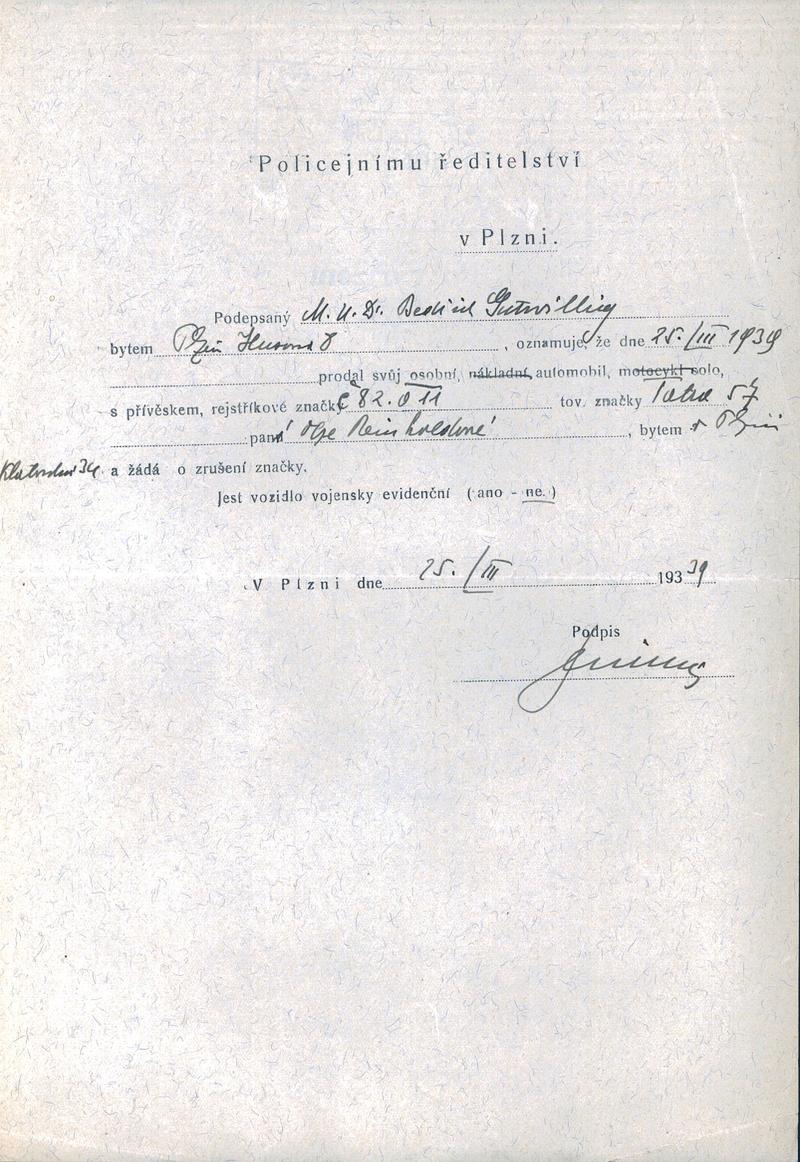 Policejnímu ředitelství
v Plzni.
Podepsaný M. U. Dr. Bedřich Gutwillig
bytem Plzeň Husova 8, oznamuje, že dne 25./III 1939
prodal svůj osobní, nákladní, automobil, motocykl solo,
s přívěskem, rejstříkové značky Č 82.011 tov. značky Tatra 57
paní Olze Reinholdové, bytem v Plzni
Klatovská 34 a žádá o zrušení značky.
Jest vozidlo vojensky evidenční (ano - ne.)
V Plzni dne 25./III 1939
Podpis